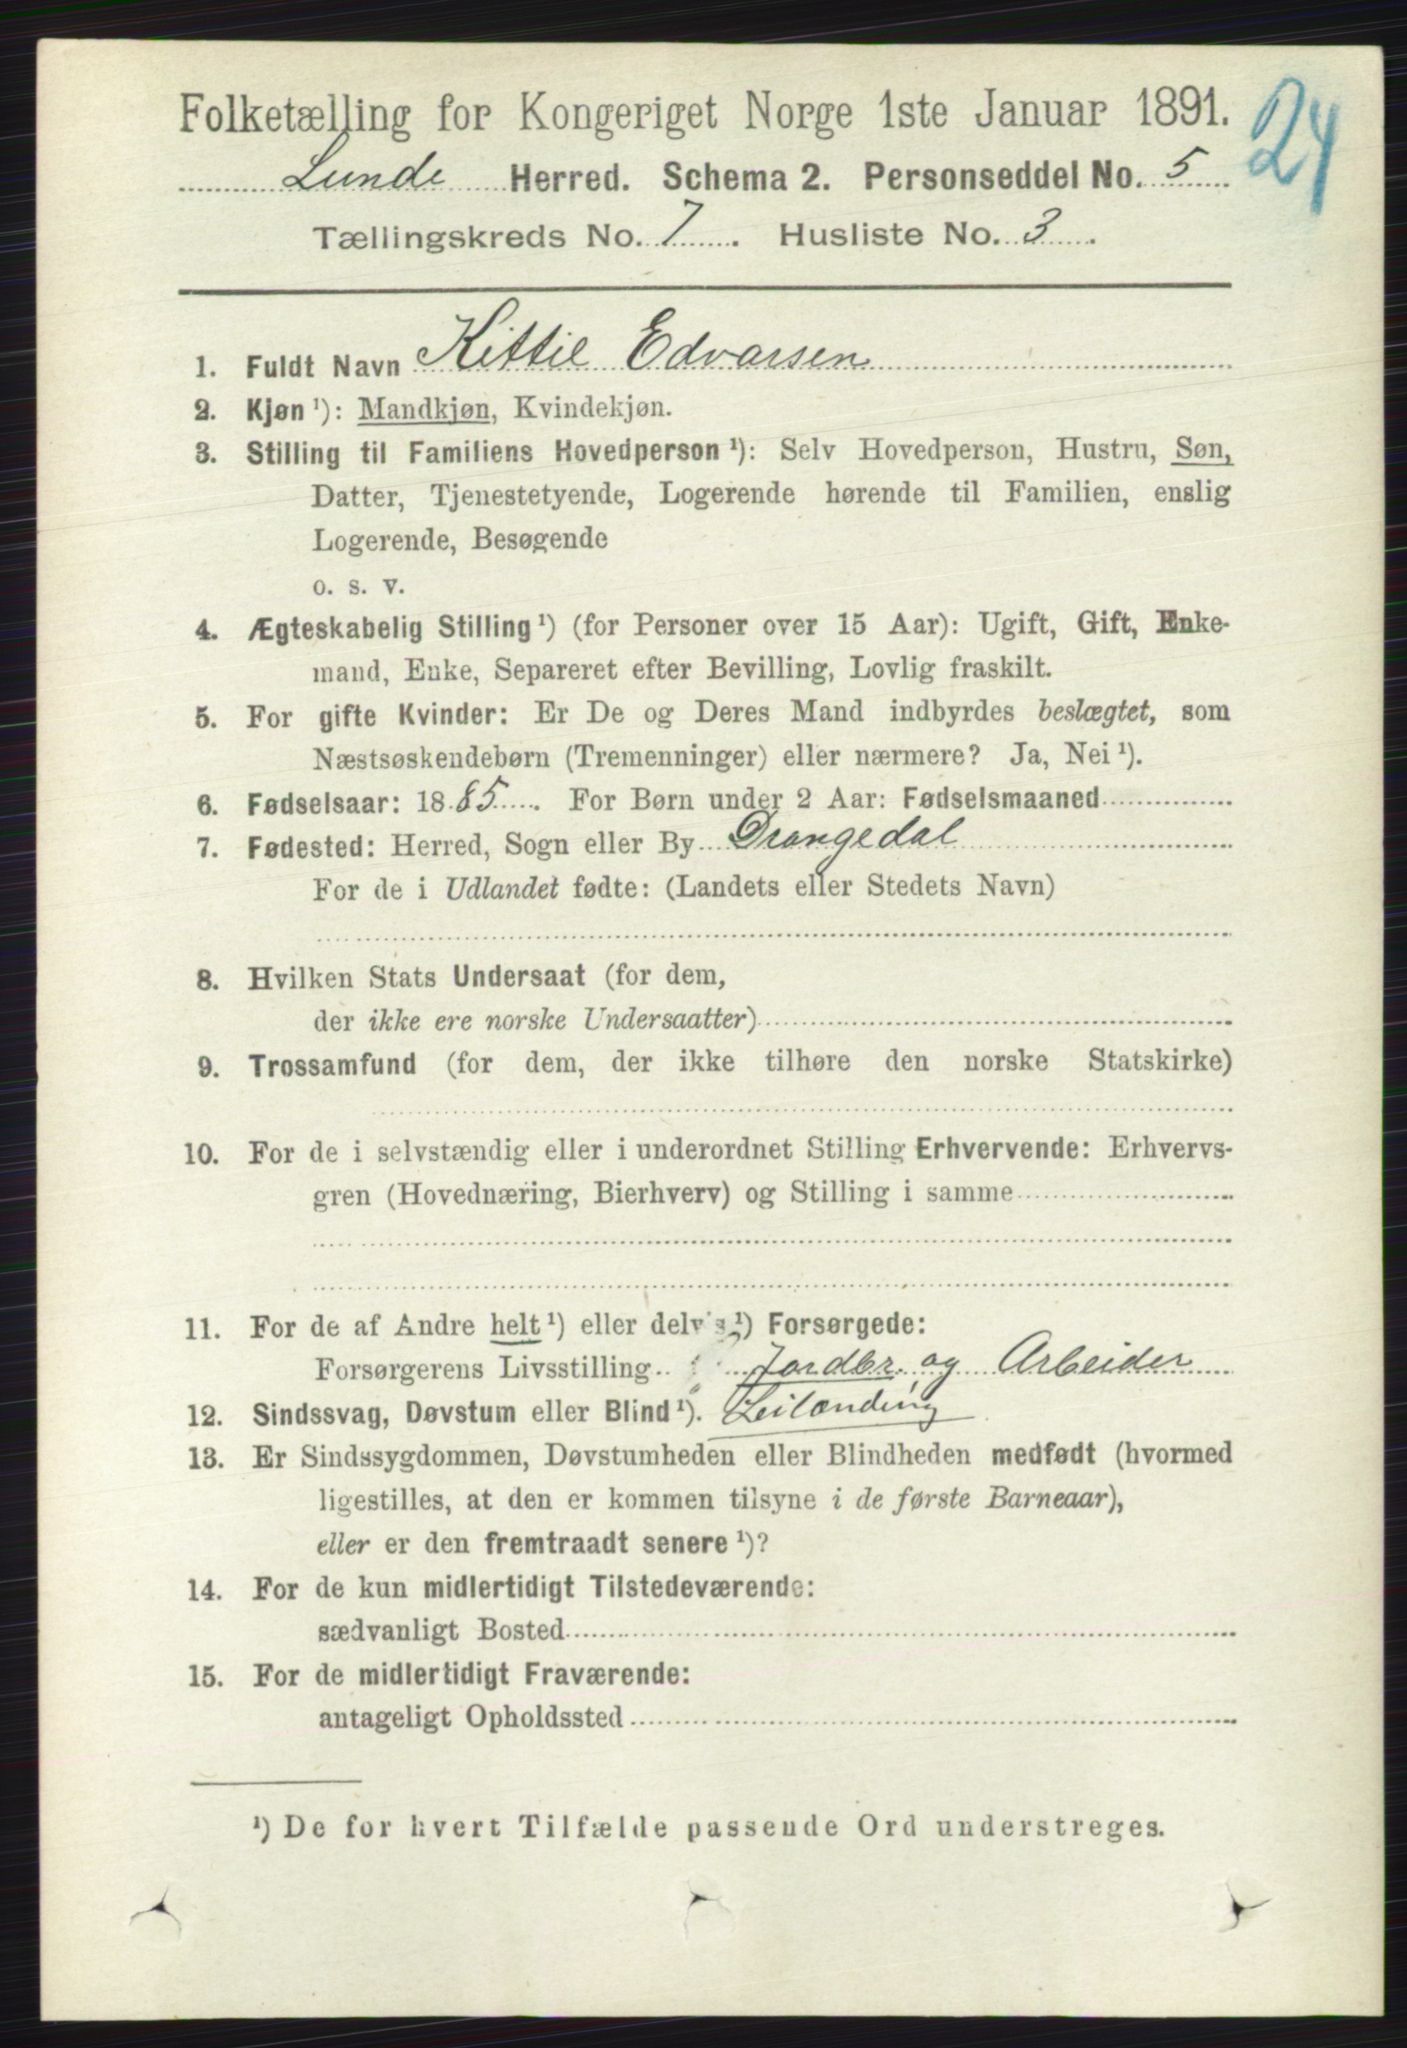 Folketælling for Kongeriget Norge 1ste Januar 1891.
24
Lunde Herred. Schema 2. Personseddel No. 5
Tællingskreds No. 7. Husliste No. 3.
1. Fuldt Navn Kittil Edvarsen
2. Kjøn ¹): Mandkjøn, Kvindekjøn.
3. Stilling til Familiens Hovedperson ¹): Selv Hovedperson, Hustru, Søn,
Datter, Tjenestetyende, Logerende hørende til Familien, enslig
Logerende, Besøgende
o. s. v.
4. Ægteskabelig Stilling ¹) (for Personer over 15 Aar): Ugift, Gift, Enke-
mand, Enke, Separeret efter Bevilling, Lovlig fraskilt.
5. For gifte Kvinder: Er De og Deres Mand indbyrdes beslægtet, som
Næstsøskendebørn (Tremenninger) eller nærmere? Ja, Nei ¹).
6. Fødselsaar: 1885. For Børn under 2 Aar: Fødselsmaaned
7. Fødested: Herred, Sogn eller By Drangedal
For de i Udlandet fødte: (Landets eller Stedets Navn)
8. Hvilken Stats Undersaat (for dem,
der ikke ere norske Undersaatter)
9. Trossamfund (for dem, der ikke tilhøre den norske Statskirke)
10. For de i selvstændig eller i underordnet Stilling Erhvervende: Erhvervs-
gren (Hovednæring, Bierhverv) og Stilling i samme
11. For de af Andre helt ¹) eller delvis ¹) Forsørgede:
Forsørgerens Livsstilling Jordbr. og Arbeider
12. Sindssvag, Døvstum eller Blind ¹). Leilænding
13. Er Sindssygdommen, Døvstumheden eller Blindheden medfødt (hvormed
ligestilles, at den er kommen tilsyne i de første Barneaar),
eller er den fremtraadt senere ¹)?
14. For de kun midlertidigt Tilstedeværende:
sædvanligt Bosted
15. For de midlertidigt Fraværende:
antageligt Opholdssted
¹) De for hvert Tilfælde passende Ord understreges.